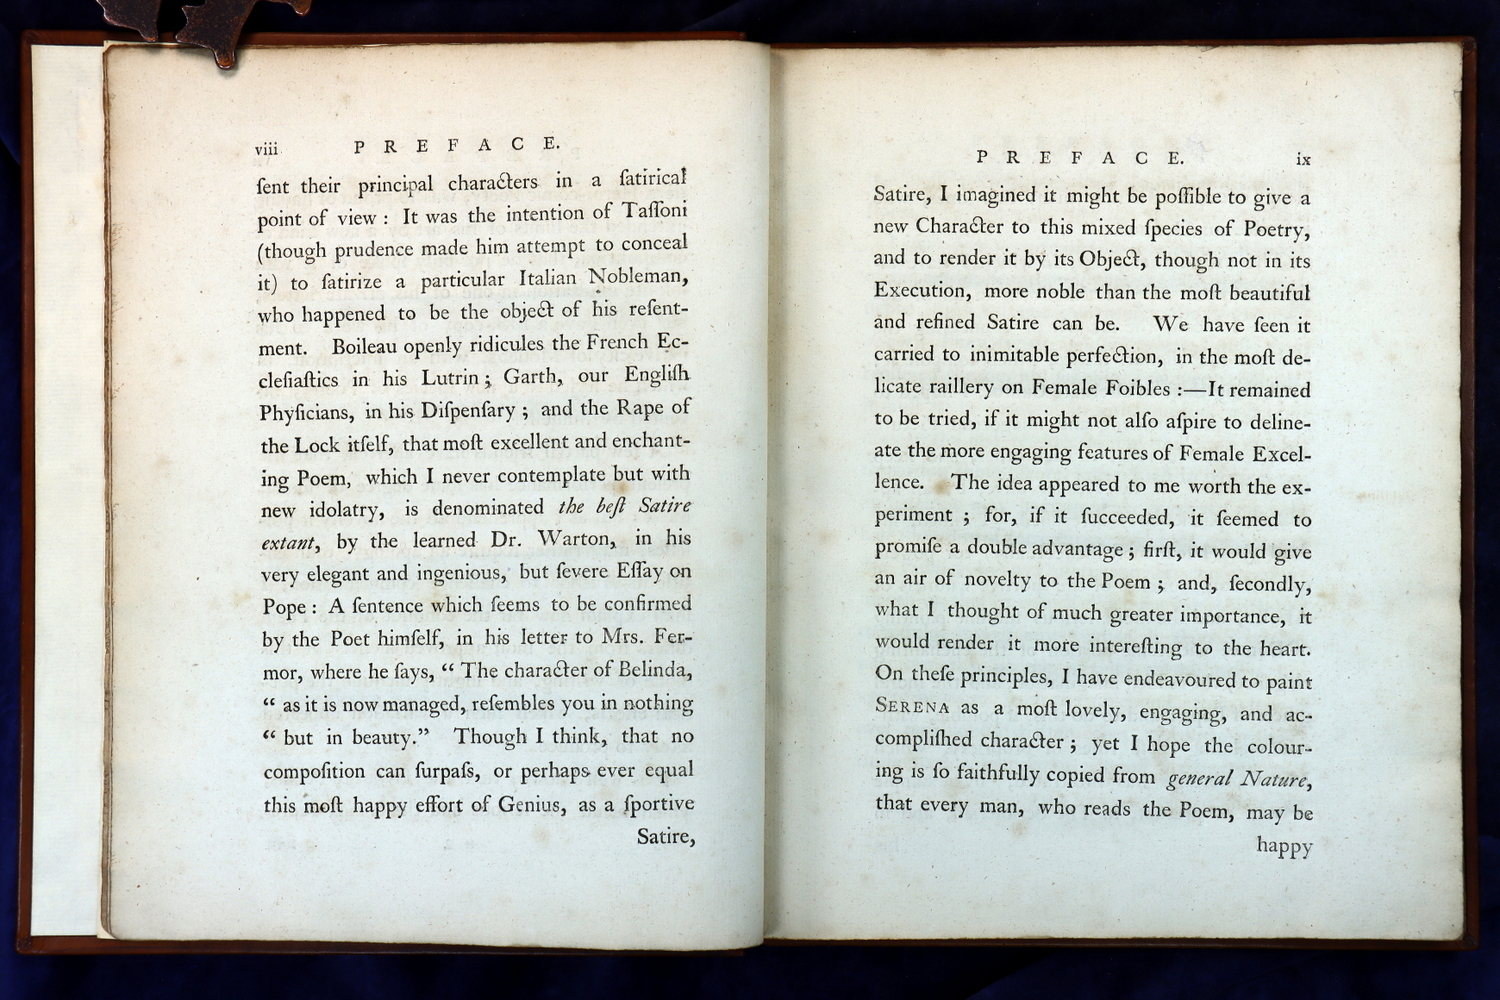 viii P R E F A C E.
ſent their principal characters in a ſatirical
point of view : It was the intention of Taſſoni
(though prudence made him attempt to conceal
it) to ſatirize a particular Italian Nobleman,
who happened to be the object of his reſent-
ment. Boileau openly ridicules the French Ec-
cleſiaſtics in his Lutrin ; Garth, our Engliſh
Phyſicians, in his Diſpenſary ; and the Rape of
the Lock itſelf, that moſt excellent and enchant-
ing Poem, which I never contemplate but with
new idolatry, is denominated the beſt Satire
extant, by the learned Dr. Warton, in his
very elegant and ingenious, but ſevere Eſſay on
Pope : A ſentence which ſeems to be confirmed
by the Poet himſelf, in his letter to Mrs. Fer-
mor, where he ſays, “ The character of Belinda,
“ as it is now managed, reſembles you in nothing
“ but in beauty.” Though I think, that no
compoſition can ſurpaſs, or perhaps ever equal
this moſt happy effort of Genius, as a ſportive
Satire,
P R E F A C E. ix
Satire, I imagined it might be poſſible to give a
new Character to this mixed ſpecies of Poetry,
and to render it by its Object, though not in its
Execution, more noble than the moſt beautiful
and refined Satire can be. We have ſeen it
carried to inimitable perfection, in the moſt de-
licate raillery on Female Foibles :—It remained
to be tried, if it might not alſo aſpire to deline-
ate the more engaging features of Female Excel-
lence. The idea appeared to me worth the ex-
periment ; for, if it ſucceeded, it ſeemed to
promiſe a double advantage ; firſt, it would give
an air of novelty to the Poem ; and, ſecondly,
what I thought of much greater importance, it
would render it more intereſting to the heart.
On theſe principles, I have endeavoured to paint
SERENA as a moſt lovely, engaging, and ac-
compliſhed character ; yet I hope the colour-
ing is ſo faithfully copied from general Nature,
that every man, who reads the Poem, may be
happy